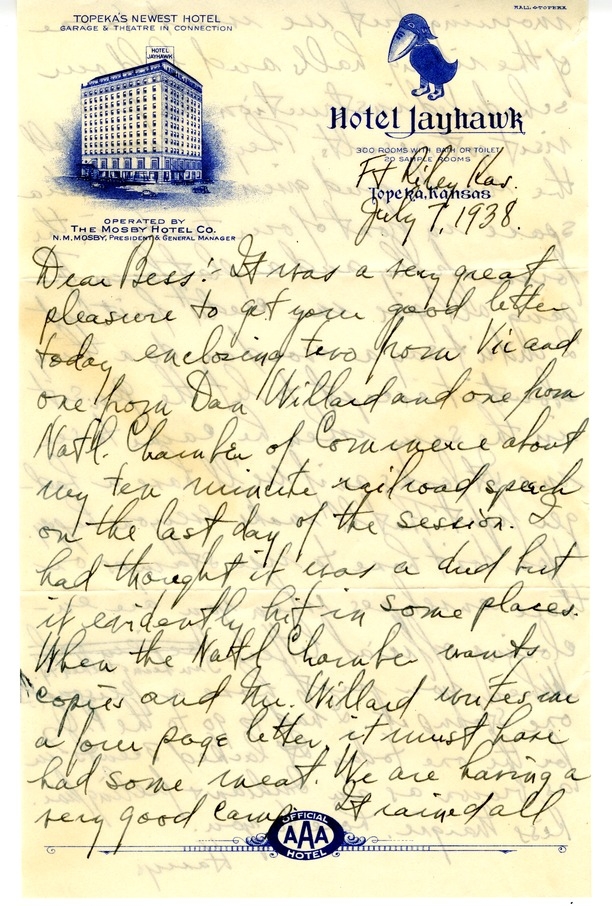 HALL-TOPEKA
TOPEKA'S NEWEST HOTEL
GARAGE & THEATRE IN CONNECTION
HOTEL
JAYHAWK
OPERATED BY
THE MOSBY HOTEL CO.
N.M. MOSBY, PRESIDENT & GENERAL MANAGER
Hotel Jayhawk
300 ROOMS WITH BATH OR TOILET
20 SAMPLE ROOMS
Topeka, Kansas
Ft Riley Kas.
July 7, 1938.
Dear Bess:- It was a very great
pleasure to get your good letter
today enclosing two from Vic and
one from Dan Willard and one from
Natl. Chamber of Commerce about
my ten minute railroad speech
on the last day of the session. I
had thought it was a dud but
it evidently hit in some places.
When the Natl Chamber wants
copies and Mr. Willard writes me
a four page letter it must have
had some meat. We are having a
very good camp. It rained all
OFFICIAL
AAA
HOTEL